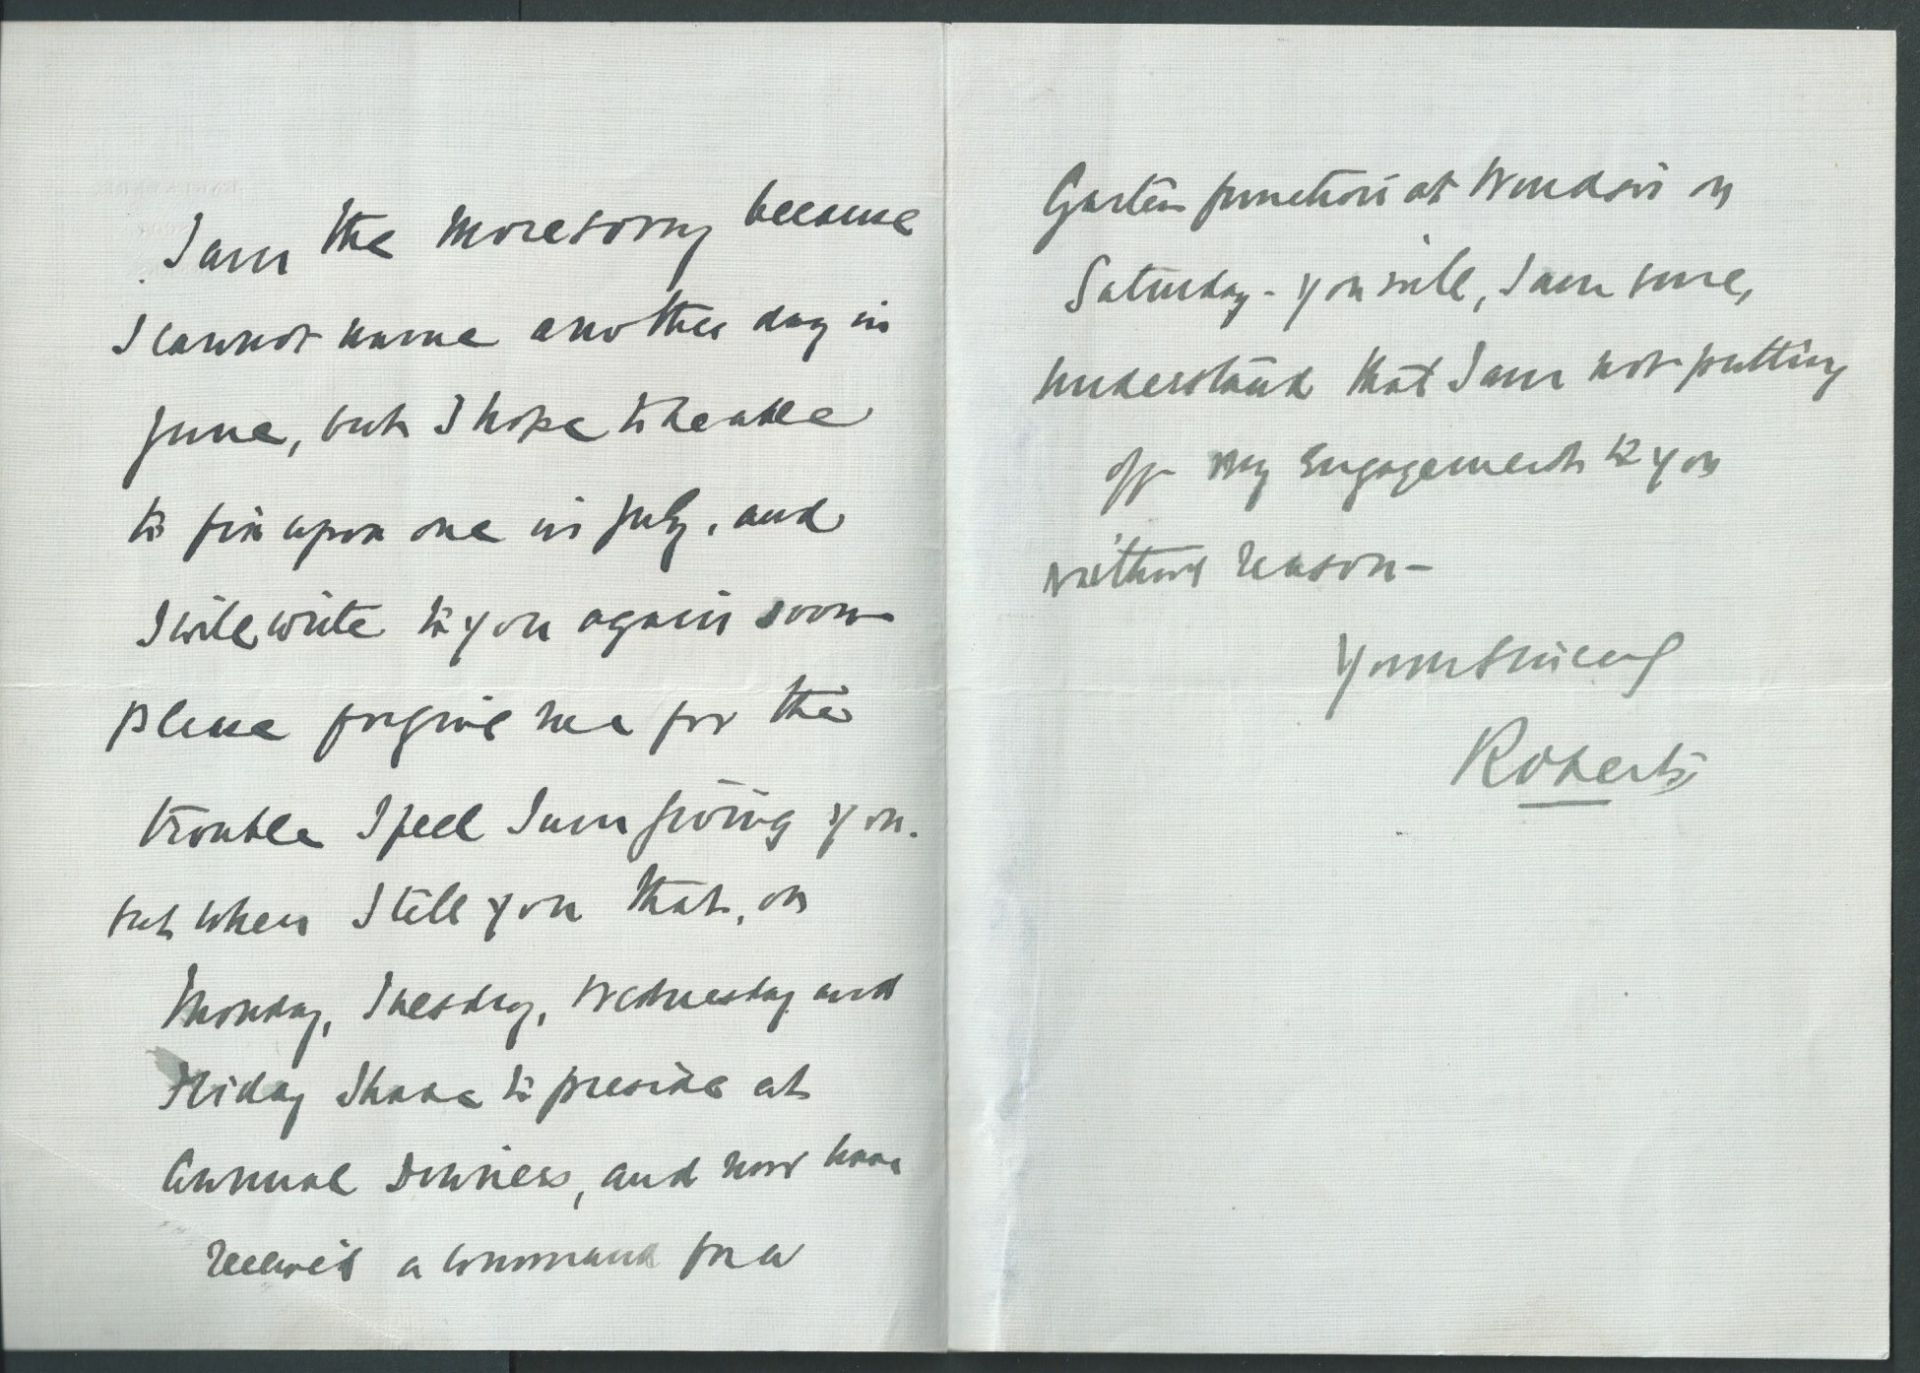 I am the more sorry because
I cannot name another day in
June, but I hope to be able
to fix upon one in July, and
I will write to you again soon
please forgive me for the
trouble I feel I am giving you.
but when I tell you that, on
Monday, Tuesday, Wednesday and
Friday I have to preside at
Annual Dinners, and now have
received a command for a
Garter function at Windsor on
Saturday - you will, I am sure,
understand that I am not putting
off my engagement to you
without reason -
Yours sincerely
Roberts